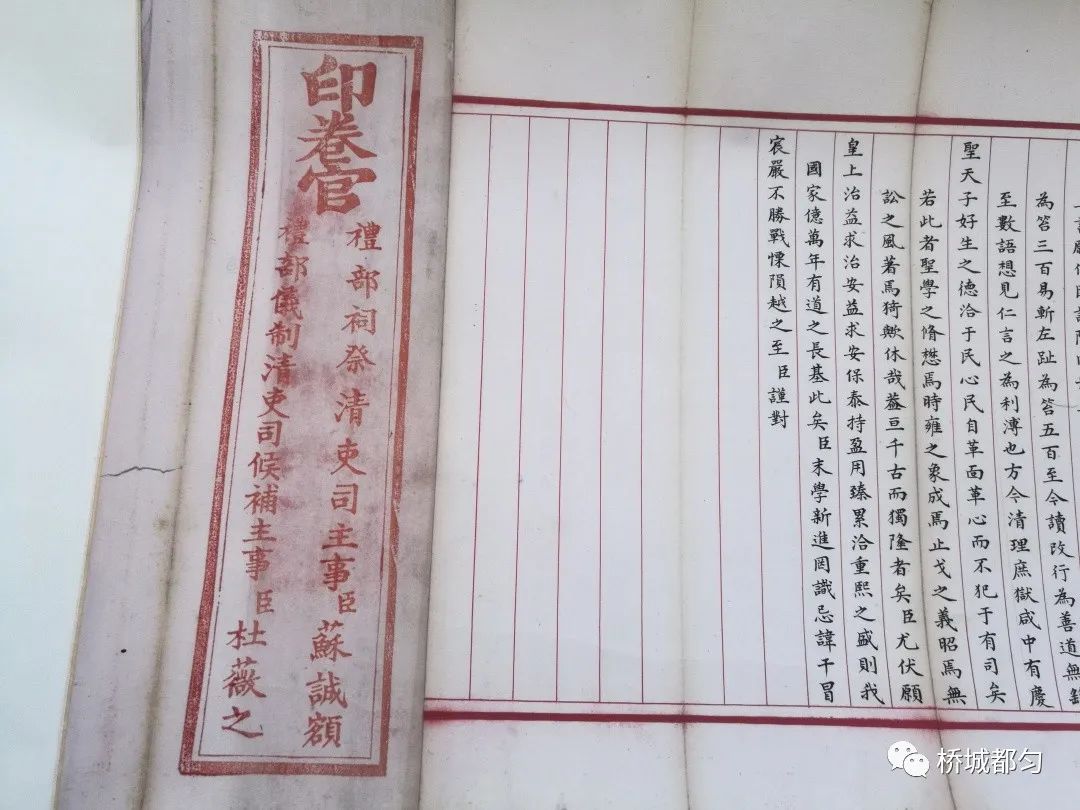 為笞三百易斬左趾為笞五百至今讀改行為善道無
至數語想見仁言之為利溥也方今清理庶獄咸中有慶
聖天子好生之德洽于民心民自革面革心而不犯于有司矣
若此者聖學之脩懋焉時雍之象成焉止戈之義昭焉無
訟之風著焉猗歟休哉蓋亘千古而獨隆者矣臣尤伏願
皇上治益求治安益求安保泰持盈用臻累洽重熙之盛則我
國家億萬年有道之長基此矣臣末學新進罔識忌諱干冒
宸嚴不勝戰慄隕越之至臣謹對
印卷官
禮部祠祭清吏司主事臣蘇誠額
禮部儀制清吏司候補主事臣杜薇之
桥城都匀